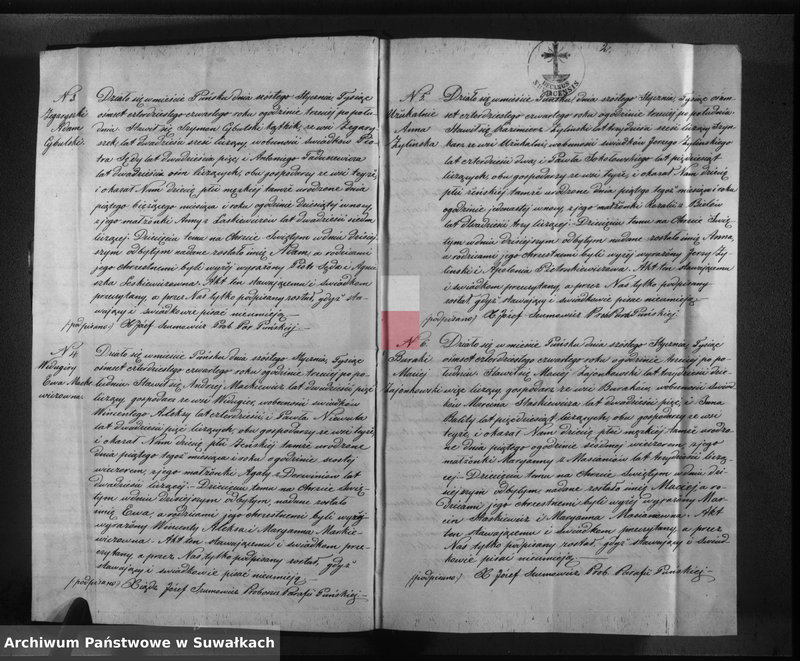 N 3.
Zegaryszki
Adam
Cybulski
Działo się w mieście Puńsku dnia szóstego Stycznia, Tysiąc
ośmset czterdziestego czwartego roku o godzinie trzeciej po połu
dniu. Stawił się Szymon Cybulski kątnik, ze wsi Zegary
szek, lat dwadzieścia sześć liczący, w obecności świadków Pio
tra Sędy lat dwadzieścia pięć, i Antoniego Tadusiewicza
lat dwadzieścia ośm liczących, obu gospodarzy ze wsi tejże,
i okazał Nam dziecię płci męzkiej tamże urodzone dnia
piątego bieżącego miesiąca i roku o godzinie dziesiątej w nocy,
z jego małżonki Anny z Laskiewiczow lat dwadzieścia siedm
liczącej. Dziecięciu temu na Chrzcie Świętym w dniu dzisiej
szym odbytym nadane zostało imię Adam, a rodzicami
jego chrzestnemi byli wyżej wyrażony Piotr Sęda i Agnie
szka Leskiewiczowna. Akt ten stawającemu i świadkom
przeczytany, a przez Nas tylko podpisany został, gdyż sta
wający i świadkowie pisać nieumieją.
(podpisano) X Józef Szumowicz Prob. Par. Puńskiej.
N 4.
Widugiery
Ewa Marke
wiczowna
Działo się w mieście Puńsku dnia szóstego Stycznia, Tysiąc
ośmset czterdziestego czwartego roku o godzinie trzeciej po po
łudniu. Stawił się Andrzej Markiewicz lat dwadzieścia pięć
liczący, gospodarz ze wsi Widugier, w obecności świadków
Wincentego Aleksy lat czterdzieści i Pawła Niewulis
lat dwadzieścia pięć liczących, obu gospodarzy ze wsi tejże,
i okazał Nam dziecię płci żeńskiej tamże urodzone
dnia piątego tegoż miesiąca i roku o godzinie szóstej
wieczorem, z jego małżonki Agaty z lat
dwadzieścia liczącej. Dziecięciu temu na Chrzcie Świę
tym w dniu dzisiejszym odbytym, nadane zostało
imię Ewa, a rodzicami jego chrzestnemi byli wyżej
wyrażony Wincenty Aleksa i Maryanna Markie
wiczowna. Akt ten stawającemu i świadkom prze
czytany, a przez Nas tylko podpisany został, gdyż
stawający i świadkowie pisać nieumieją.
(podpisano) Józef Szumowicz Proboszcz Parafii Puńskiej.
2.
N 5.
Anna
Żylinska
Działo się w mieście Puńsku dnia szóstego Stycznia, Tysiąc ośm
set czterdziestego czwartego roku o godzinie trzeciej po południu.
Stawił się Kazimierz Żylinski lat trzydzieścia sześć liczący
ze wsi w obecności świadków Jerzego Żylinskiego
lat czterdzieści dwa, i Pawła Sokołowskiego lat pięćdziesiąt
liczących, obu gospodarzy ze wsi tejże, i okazał Nam dziecię
płci żeńskiej tamże urodzone dnia piątego tegoż miesiąca i roku
o godzinie jedenastej w nocy z jego małżonki Rozalii z
lat trzy liczącej. Dziecięciu temu na Chrzcie Świę
tym w dniu dzisiejszym odbytym nadane zostało imię Anna,
a rodzicami jego chrzestnemi byli wyżej wyrażony Jerzy Ży
linski i Apolonia Piotrukiewiczowna. Akt ten stawającemu
i świadkom przeczytany, a przez Nas tylko podpisany
został, gdyż stawający i świadkowie pisać nieumieją.
(podpisano) X Józef Szumowicz Puńskiej.
N 6.
Buraki
Maciej
Zajankowski
Działo się w mieście Puńsku dnia szóstego Stycznia, Tysiąc
ośmset czterdziestego czwartego roku o godzinie trzeciej po po
łudniu. Stawił się Maciej Zajankowski lat trzydzieści dzie
więć liczący, gospodarz ze wsi Burakow, w obecności świad
ków Marcina Staskiewicza lat dwadzieścia pięć, i Jana
lat pięćdziesiąt liczących, obu gospodarzy ze wsi
tejże, i okazał Nam dziecię płci męzkiej tamże urodzo
ne dnia piątego o godzinie siódmej wieczorem, z jego
małżonki Maryanny z lat trzydzieści liczą
cej. Dziecięciu temu na Chrzcie Świętym w dniu dzi
siejszym odbytym nadane zostało imię Maciej, a ro
dzicami jego chrzestnemi byli wyżej wyrażony Mar
cin Staskiewicz i Maryanna. Akt
ten stawającemu i świadkom przeczytany, a przez
Nas tylko podpisany został, gdyż stawający i świad
kowie pisać nieumieją.
(podpisano) X Józef Szumowicz Prob. Parafii Puńskiej.
Archiwum Państwowe w Suwałkach